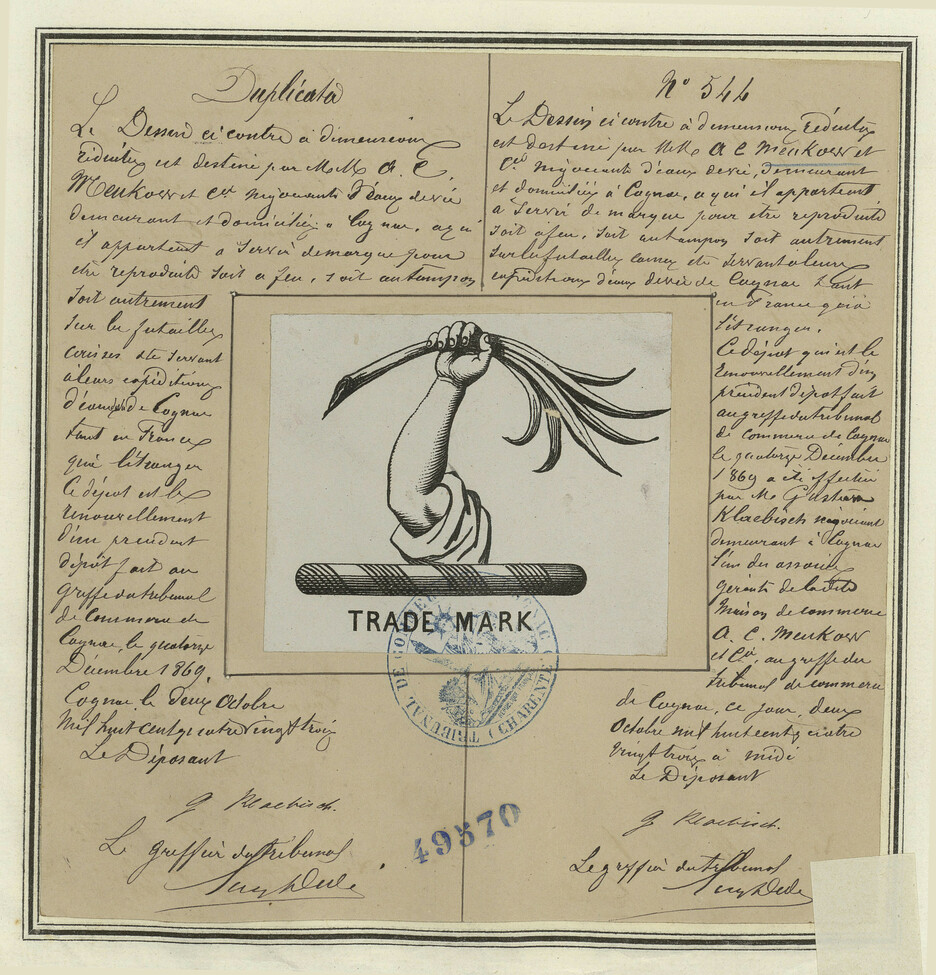 Duplicata
Le Dessin ci contre à dimensions
réduites est destiné par MM. A. C.
Meukow et Cie négociants d'eaux de vie
demeurant et domiciliés à Cognac, a qui
il appartient a servir de marque pour
etre reproduite soit a feu, soit au tampon
soit autrement
sur les futailles
caisses etc servant
à leurs expéditions
d'eaux de vie de Cognac
tant en France
qu'à l'étranger
Ce dépôt est le
renouvellement
d'un précédent
dépôt fait au
greffe du tribunal
de Commerce de
Cognac, le quatorze
Décembre 1869.
Cognac, le deux Octobre
Mil huit cent quatre vingt trois
Le Déposant
G Klaebisch.
Le greffier du tribunal
N° 544
Le Dessin ci contre à dimensions réduites
est destiné par MM. A C Meukow et
Cie négociants d'eaux de vie, demeurant
et domiciliés à Cognac, a qui il appartient
a servir de marque pour etre reproduite
soit à feu, soit au tampon soit autrement
sur les futailles caisses etc servant à leurs
expéditions d'eaux de vie de Cognac tant
en France qu'à
l'étranger.
Ce dépôt qui est le
renouvellement d'un
précédent dépôt fait
au greffe du tribunal
de commerce de Cognac
le quatorze Décembre
1869 a été effectué
par Mr Gustave
Klaebisch négociant
demeurant à Cognac
l'un des associés
gérants de la dite
Maison de commerce
A. C. Meukow
et Cie, au greffe du
tribunal de commerce
de Cognac, ce jour, deux
Octobre mil huit cent quatre
vingt trois à midi
Le Déposant
G Klaebisch.
Le greffier du tribunal
TRADE MARK
TRIBUNAL DE COMMERCE COGNAC (CHARENTE)
49570